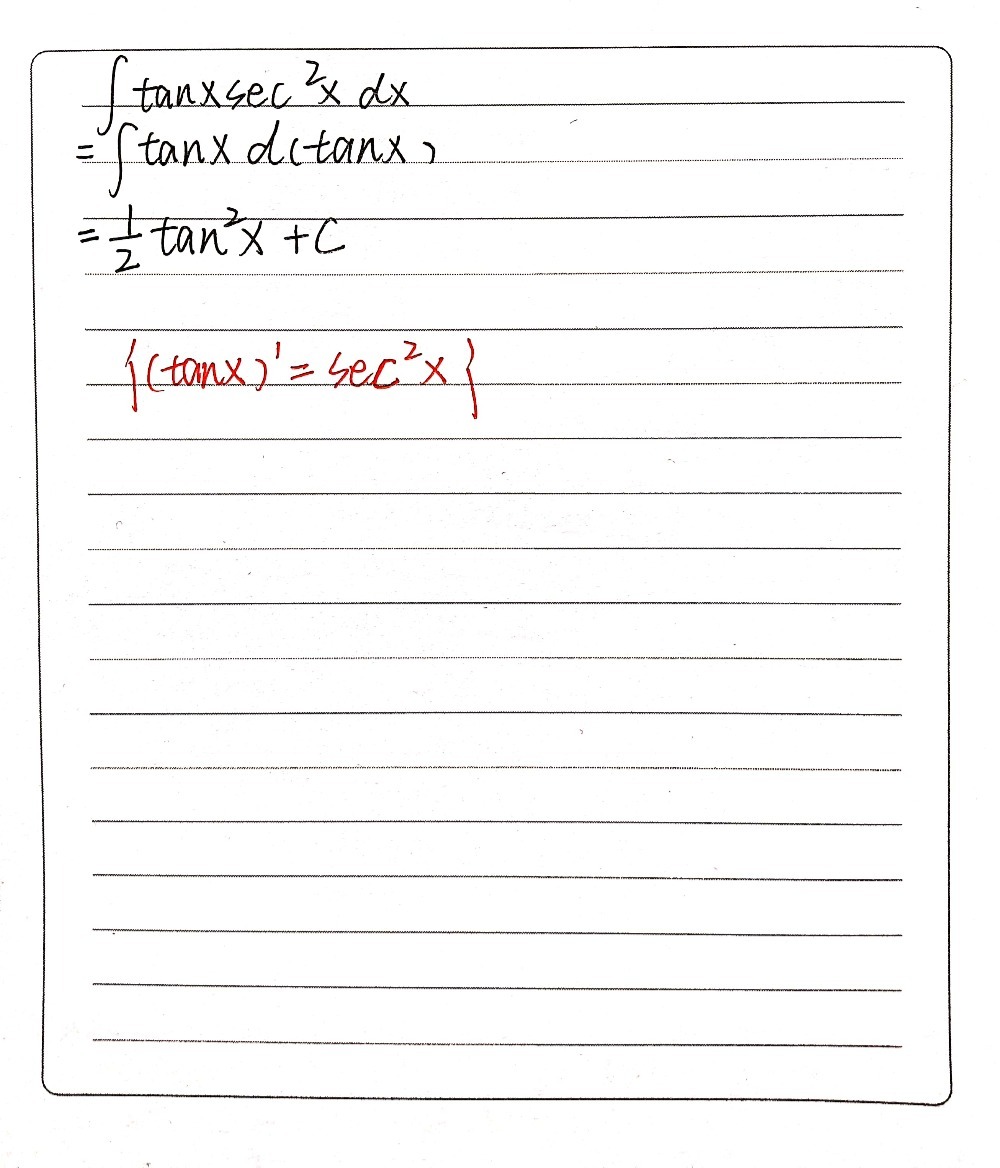 ∫tanxsec²x dx
=∫tanx d(tanx)
=½ tan²x +C
{(tanx)' = sec²x}